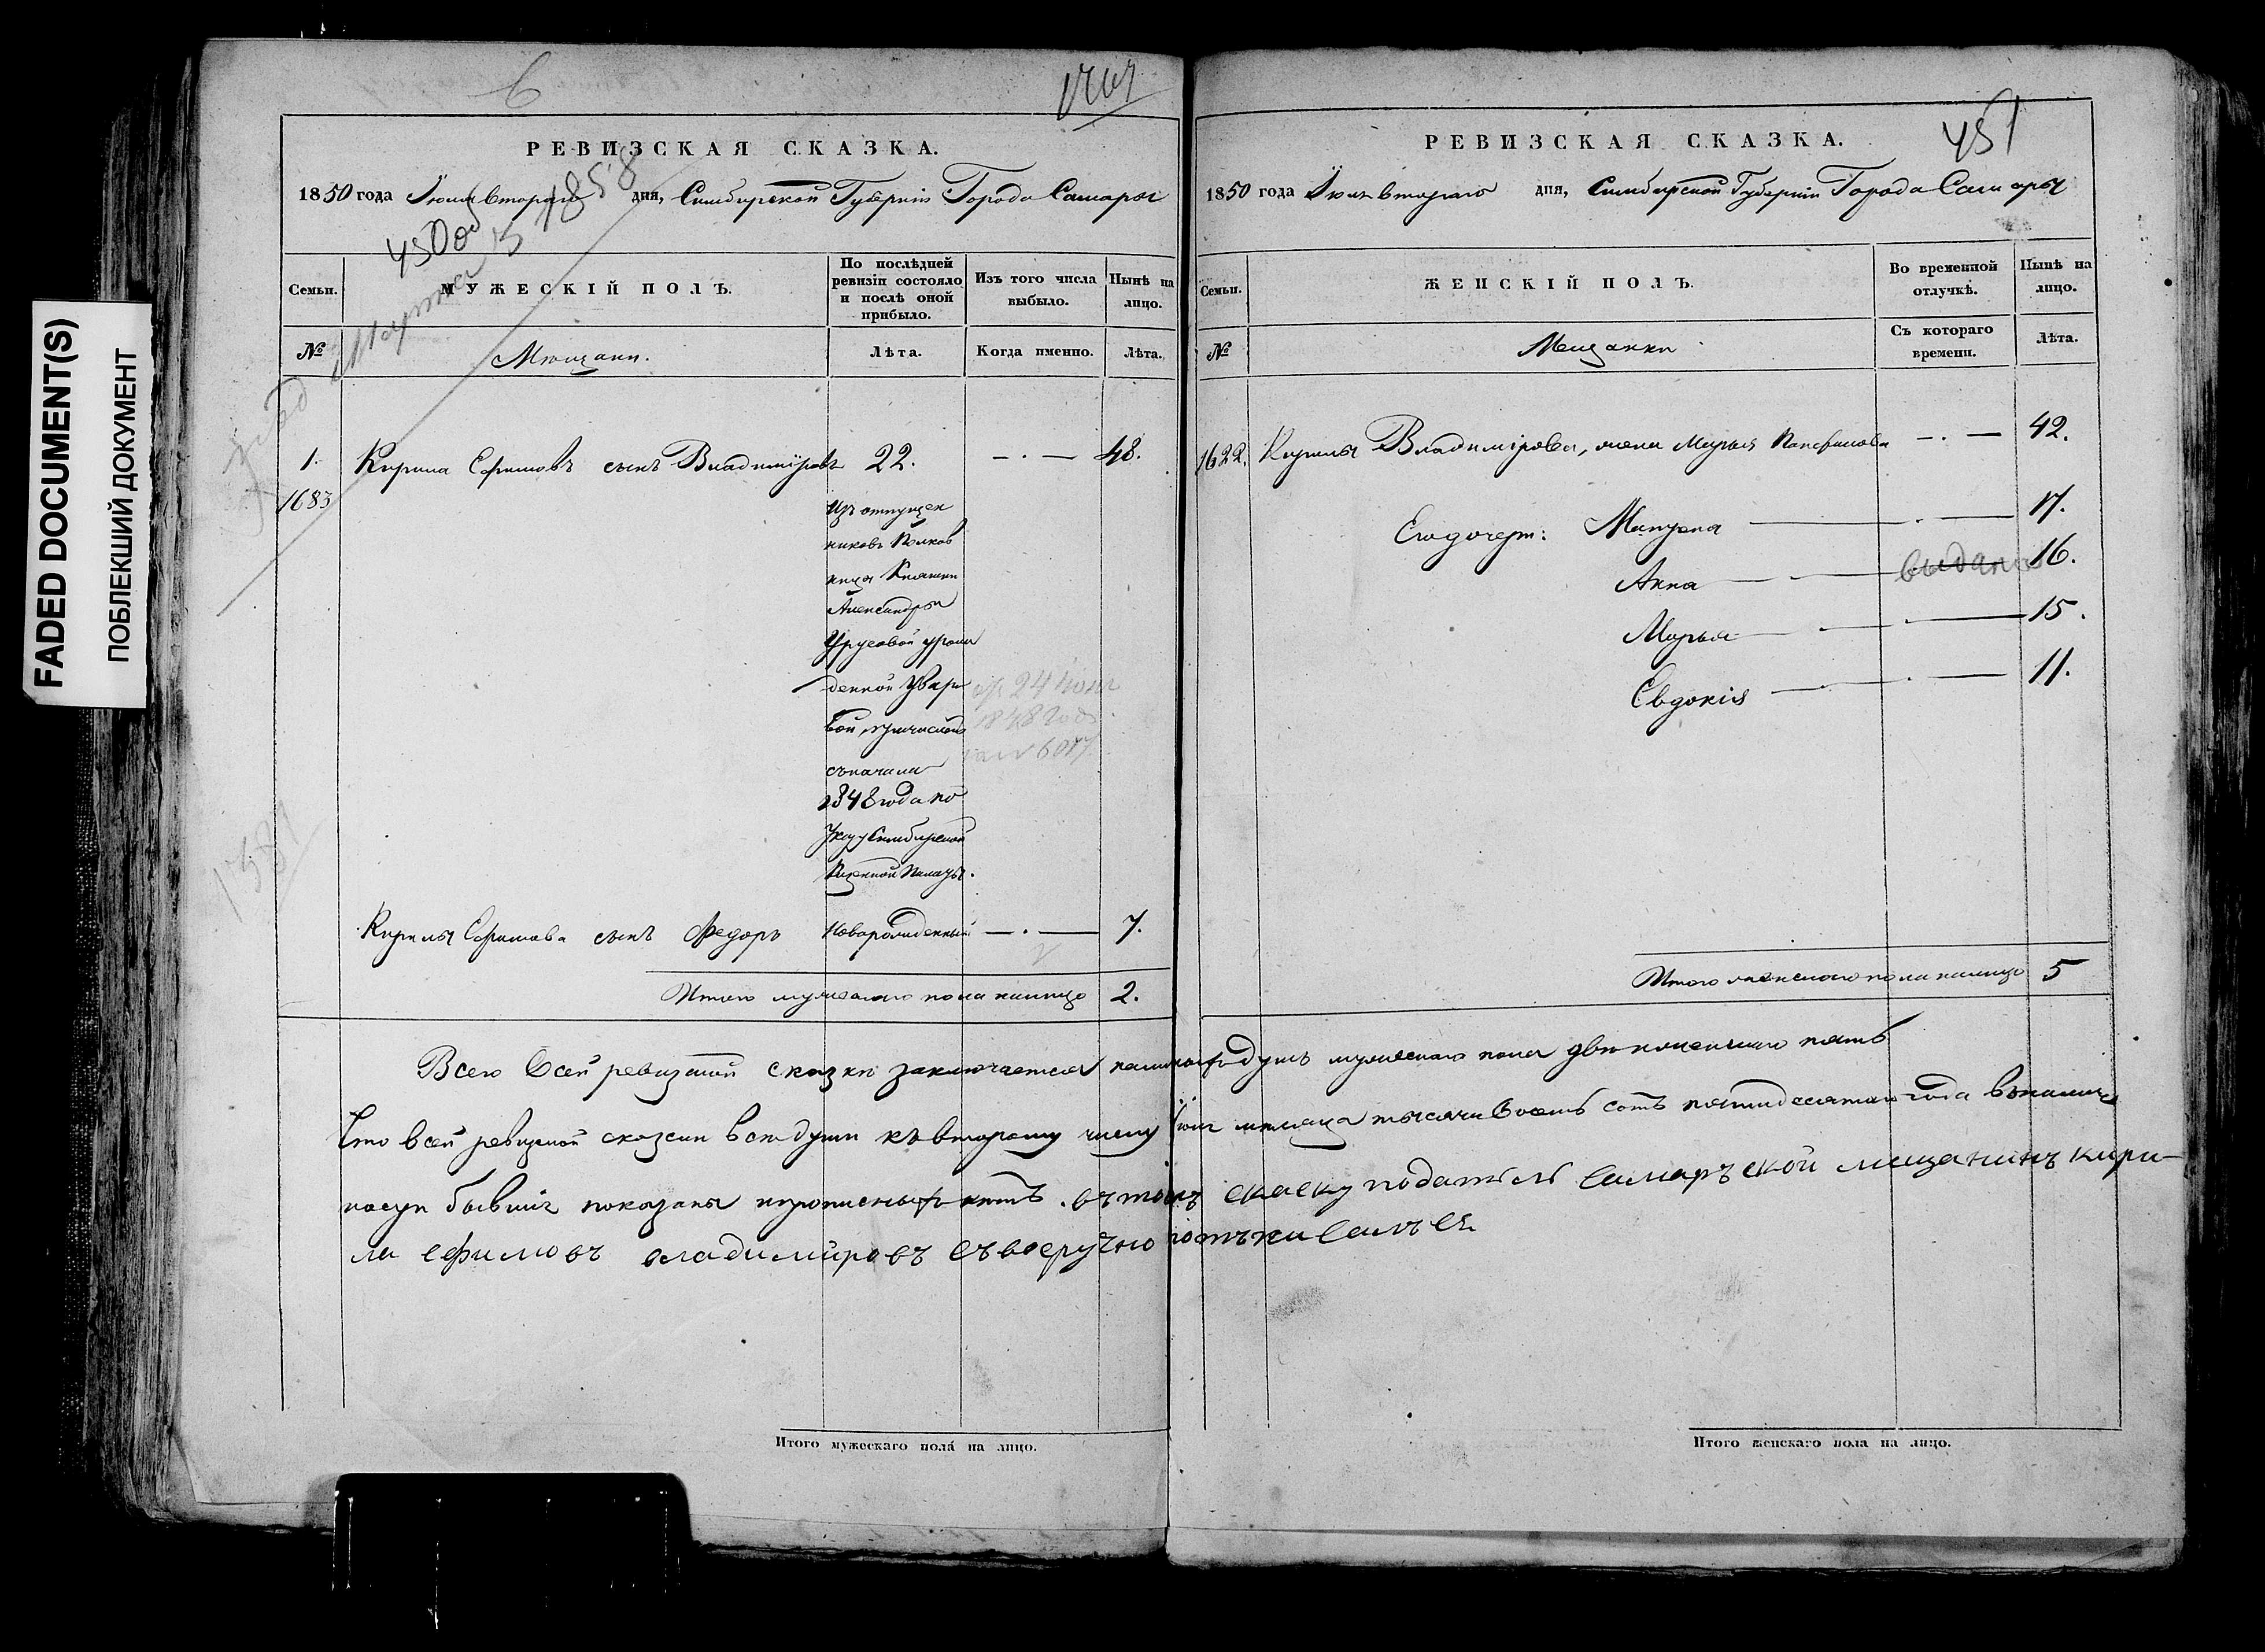 FADED DOCUMENT(S)
ПОБЛЕКШИЙ ДОКУМЕНТ
6
РЕВИЗСКАЯ СКАЗКА.
1850 года Іюля втораго дня, Симбирской Губерніи Города Самары
450 об
Марта 15 1858
Семьи.
МУЖЕСКІЙ ПОЛЪ.
По послѣдней ревизіи состояло и послѣ оной прибыло.
Изъ того числа выбыло.
Нынѣ на лицо.
№
Мѣщани.
Лѣта.
Когда именно.
Лѣта.
1.
1683
Кирила Ефимовъ сынъ Владиміровъ 22. — . — 48.
Изъ отпущен
никовъ Полков
ницы Княгини
Александры
Урусовой урож
денной Увар
вой, причислен
съ начала
1848 года по
Указу Симбирской
Казенной Палаты.
24 Іюня
1848 года
за № 6017
1581
Кирилы Ефимова сынъ Федоръ Новорожденный — . — 7.
Итого мужескаго пола налицо 2.
Итого мужескаго пола на лицо.
451
РЕВИЗСКАЯ СКАЗКА.
1850 года Іюля втораго дня, Симбирской Губерніи Города Самары
Семьи.
ЖЕНСКІЙ ПОЛЪ.
Во временной отлучкѣ.
Нынѣ на лицо.
№
Мещанки
Съ котораго времени.
Лѣта.
1622. Кирилы Владимірова, жена Марья Панфилова — . — 42.
Его дочери: Матрена — . — 17.
Анна — . — выдана 16.
Марья — . — 15.
Евдокія — . — 11.
Итого женскаго пола налицо 5
Всего всей ревизской сказки заключается налицо душъ мужескаго пола двѣ и женскаго пять
Что всей ревизской сказки всѣ души къ второму числу Іюля месяца тысяча восемь сотъ пятидесятаго года въ налич
ности бывшія показаны и прописныхъ нѣтъ. въ томъ скаску податѣль самаръской мещанинъ кири-
ла ефимовъ владиміровъ съвоеручно потъписалъся
Итого женскаго пола на лицо.